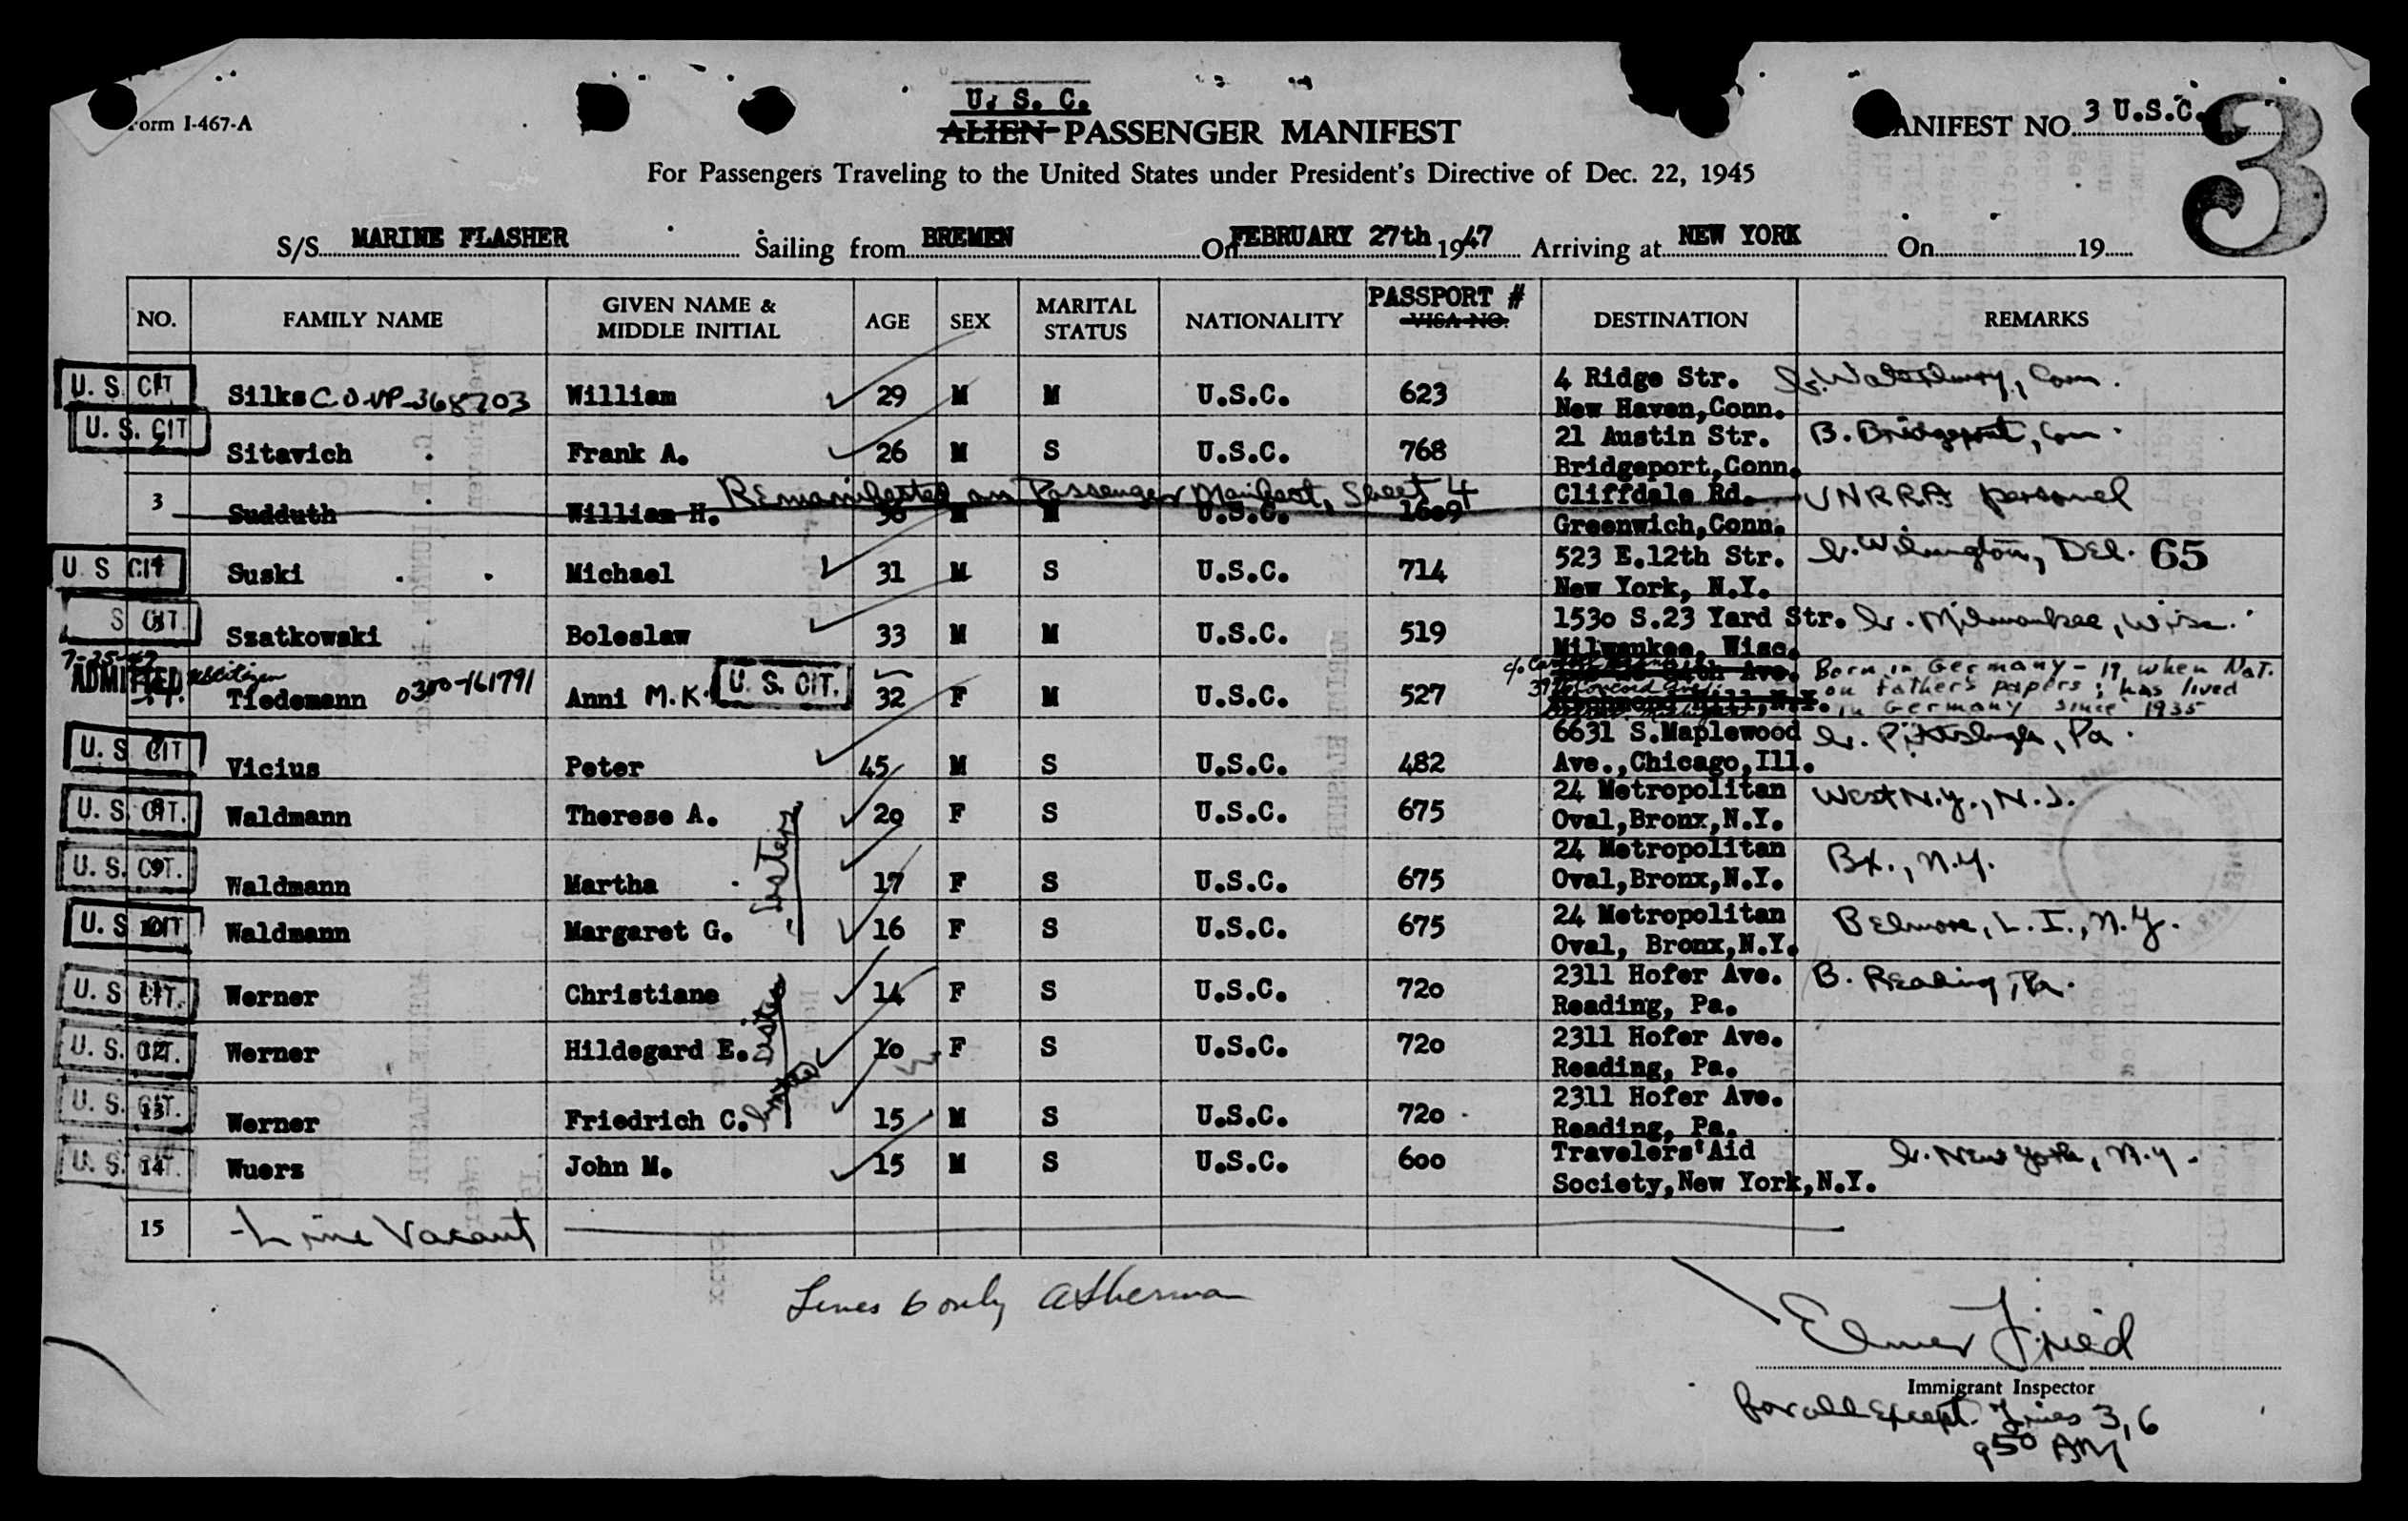 Form I-467-A
U. S. C.
ALIEN PASSENGER MANIFEST
MANIFEST NO. 3 U.S.C.
3
For Passengers Traveling to the United States under President's Directive of Dec. 22, 1945
S/S MARINE FLASHER Sailing from BREMEN On FEBRUARY 27th 1947 Arriving at NEW YORK On 19
NO. FAMILY NAME GIVEN NAME & MIDDLE INITIAL AGE SEX MARITAL STATUS NATIONALITY PASSPORT # VISA NO. DESTINATION REMARKS
U. S. CIT 1 Silks C.O.VP-368703 William 29 M M U.S.C. 623 4 Ridge Str. New Haven,Conn. b. Waterbury, Conn.
U. S. CIT 2 Sitavich Frank A. 26 M S U.S.C. 768 21 Austin Str. Bridgeport,Conn. B. Bridgeport, Conn.
Remanifested on Passenger Manifest, Sheet 4
3 Sudduth William H. 36 M M U.S.C. 1609 Cliffdale Rd. Greenwich,Conn. UNRRA personel
U S CIT 4 Suski Michael 31 M S U.S.C. 714 523 E.12th Str. New York, N.Y. b. Wilmington, Del. 65
S CIT. 5 Szatkowski Boleslaw 33 M M U.S.C. 519 1530 S.23 Yard Str. Milwaukee, Wisc. b. Milwaukee, Wisc.
ADMITTED Tiedemann 0300-161791 Anni M.K. U. S. CIT. 32 F M U.S.C. 527 Born in Germany - 19 when Nat. on father's papers; has lived in Germany since 1935
U. S CIT 7 Vicius Peter 45 M S U.S.C. 482 6631 S.Maplewood Ave.,Chicago,Ill. b. Pittsburgh, Pa.
U. S. CIT. 8 Waldmann Therese A. 20 F S U.S.C. 675 24 Metropolitan Oval,Bronx,N.Y. West N.Y., N.J.
U. S. CIT. 9 Waldmann Martha 17 F S U.S.C. 675 24 Metropolitan Oval,Bronx,N.Y. Bx., N.Y.
U. S CIT 10 Waldmann Margaret G. 16 F S U.S.C. 675 24 Metropolitan Oval, Bronx,N.Y. Belmore, L. I., N.Y.
Sisters
U. S CIT. 11 Werner Christiane 14 F S U.S.C. 720 2311 Hofer Ave. Reading, Pa. B. Reading, Pa.
U. S. CIT. 12 Werner Hildegard E. 10 F S U.S.C. 720 2311 Hofer Ave. Reading, Pa.
U. S. CIT. 13 Werner Friedrich C. 15 M S U.S.C. 720 2311 Hofer Ave. Reading, Pa.
U. S. CIT. 14 Wuerz John M. 15 M S U.S.C. 600 Travelers'Aid Society,New York,N.Y. b. New York, N.Y.
15 Line Vacant
Lines 6 only
Elmer Fried
Immigrant Inspector
for all except Lines 3, 6
950 AM